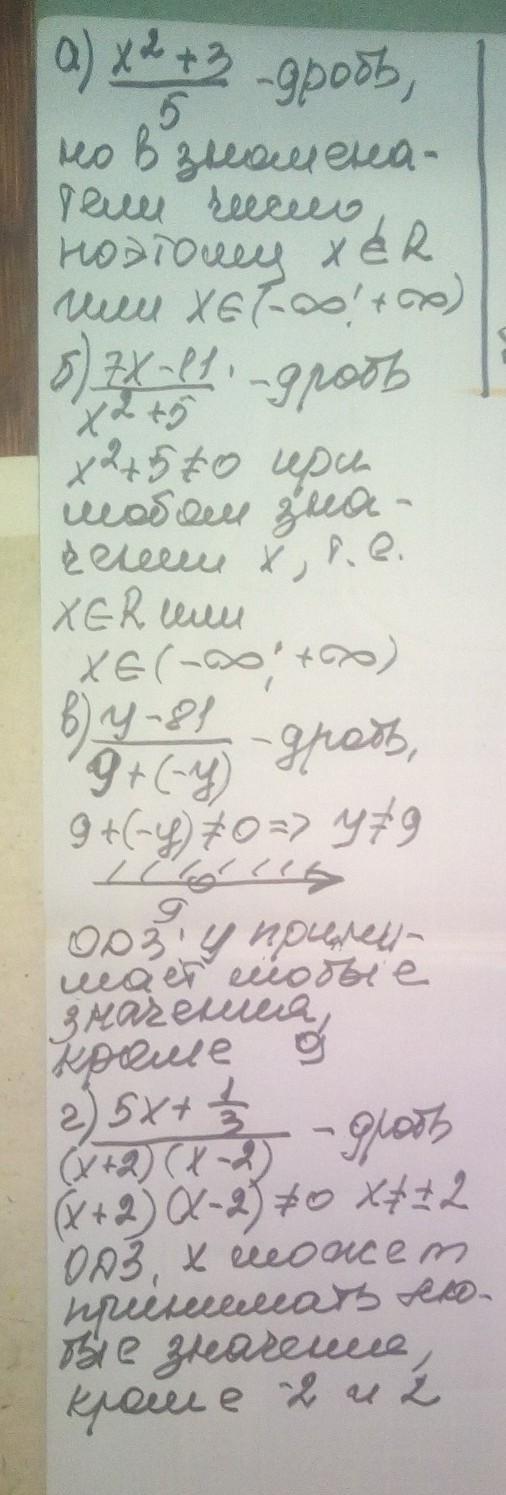 а) x² + 3 / 5 - дробь,
но в знамена-
тели число,
поэтому x ∈ R
или x ∈ (-∞; +∞)
б) 7x - 81 / x² + 5 - дробь
x² + 5 ≠ 0 при
любом зна-
чении x, т. е.
x ∈ R или
x ∈ (-∞; +∞)
в) y - 81 / 9 + (-y) - дробь,
9 + (-y) ≠ 0 => y ≠ 9
9
ОДЗ: y прини-
мает любые
значения,
кроме 9
г) 5x + 1/3 / (x+2)(x-2) - дробь
(x+2)(x-2) ≠ 0 x ≠ ±2
ОДЗ: x может
принимать лю-
бые значения,
кроме -2 и 2